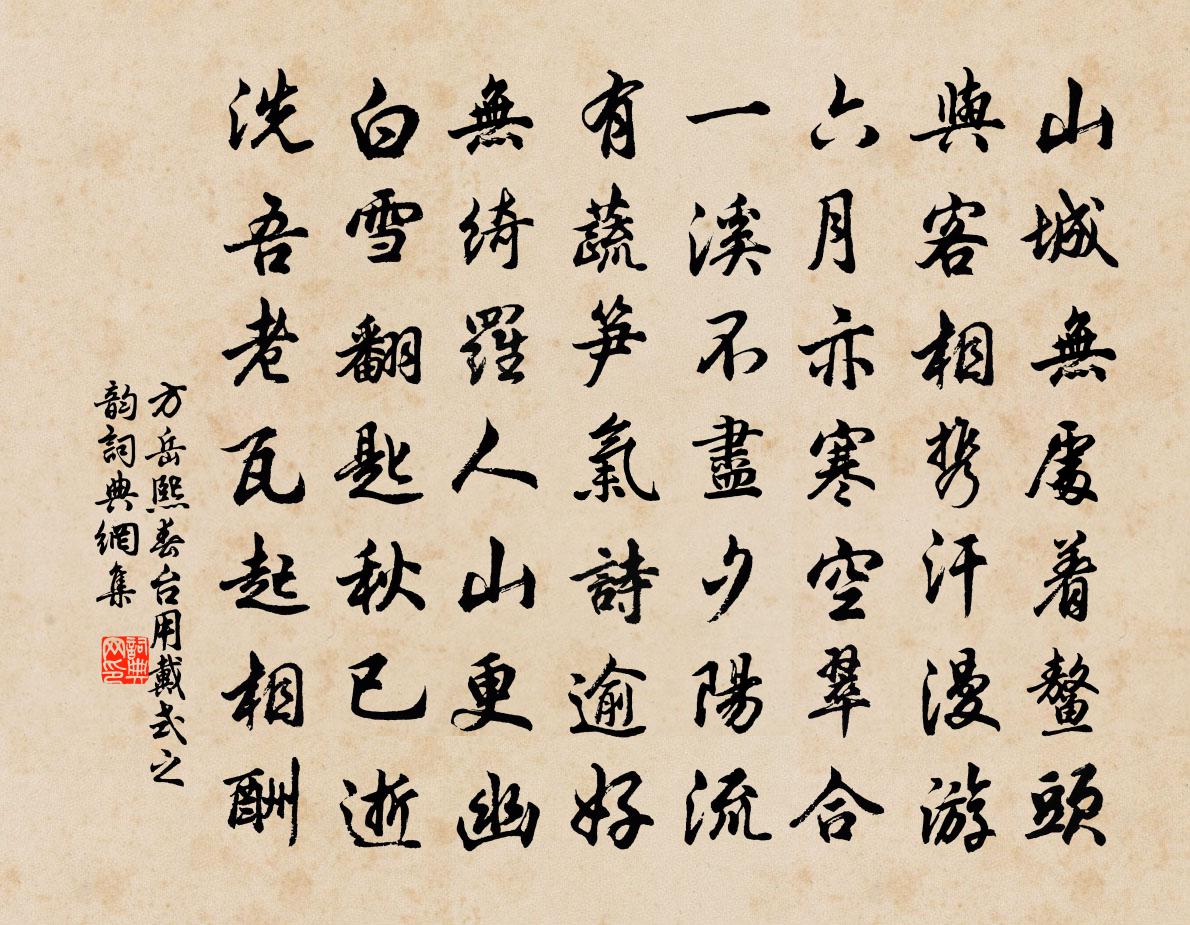 山城無處着鰲頭
與客相携汗漫游
六月亦寒空翠合
一溪不盡夕陽流
有蔬笋氣詩逾好
無綺羅人山更幽
白雪翻匙秋已逝
洗吾老瓦起相酬
方岳熙春台用戴式之
韵詞典網集
詞典
网印